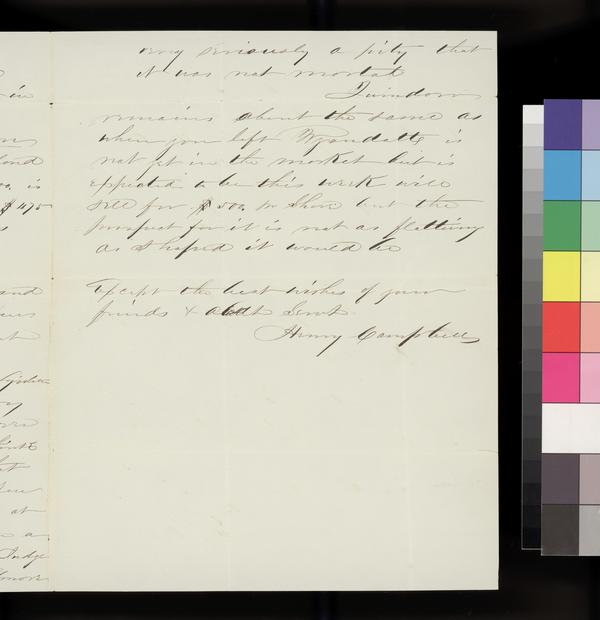 very seriously a pity that
it was not mortal
Quindaro
remains about the same as
when you left Wyandott is
not yet in the market but is
expected to be this week will
sell for $500. pr Share but the
prospect for it is not as flattering
as I hoped it would be
Except the best wishes of your
friends &
Henry Campbell
in
is
$475
and
at
a
Judge